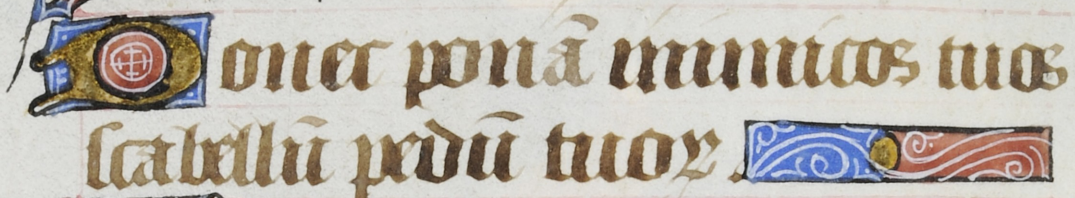 Donec ponā inimicos tuos
scabellū pedū tuoꝝ.